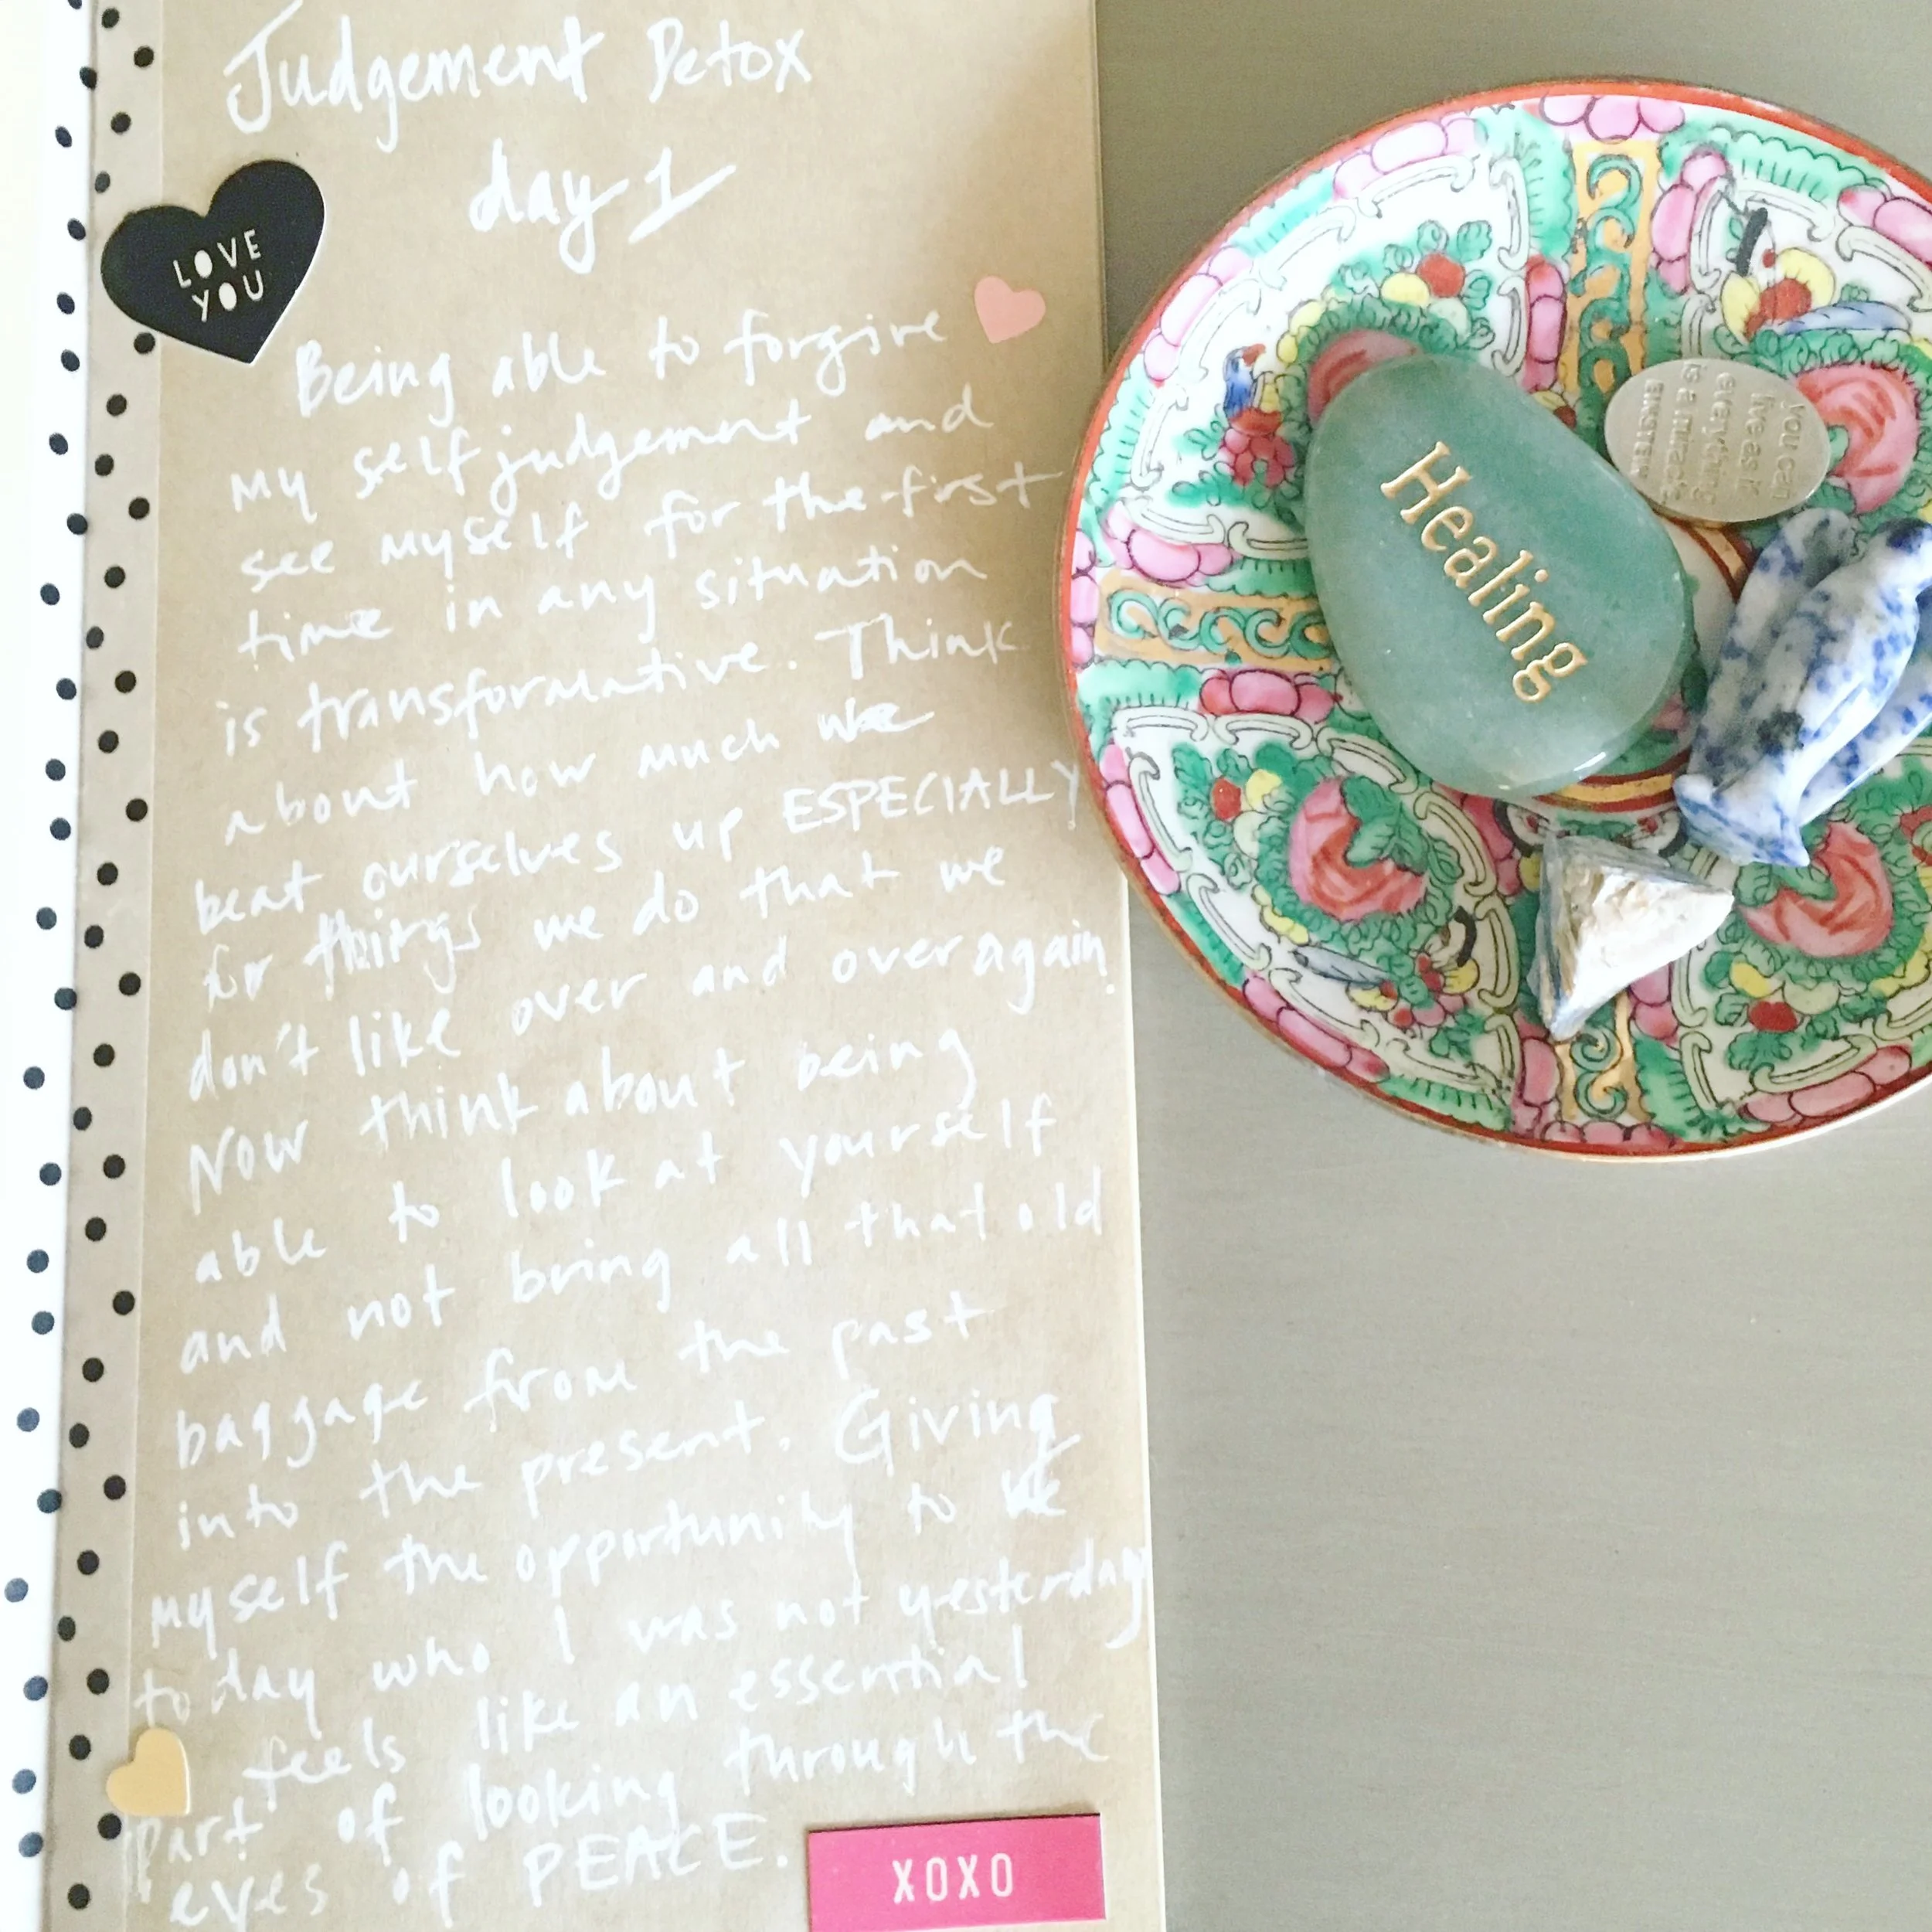 Judgement Detox
day 1
LOVE
YOU
Being able to forgive
my self judgement and
see myself for the first
time in any situation
is transformative. Think
about how much we
beat ourselves up ESPECIALLY
for things we do that we
don't like over and over again.
Now think about being
able to look at yourself
and not bring all that old
baggage from the past
into the present. Giving
myself the opportunity to be
today who I was not yesterday
feels like an essential
part of looking through the
eyes of PEACE.
XOXO
Healing
you can
live as if
everything
is a miracle.
EINSTEIN